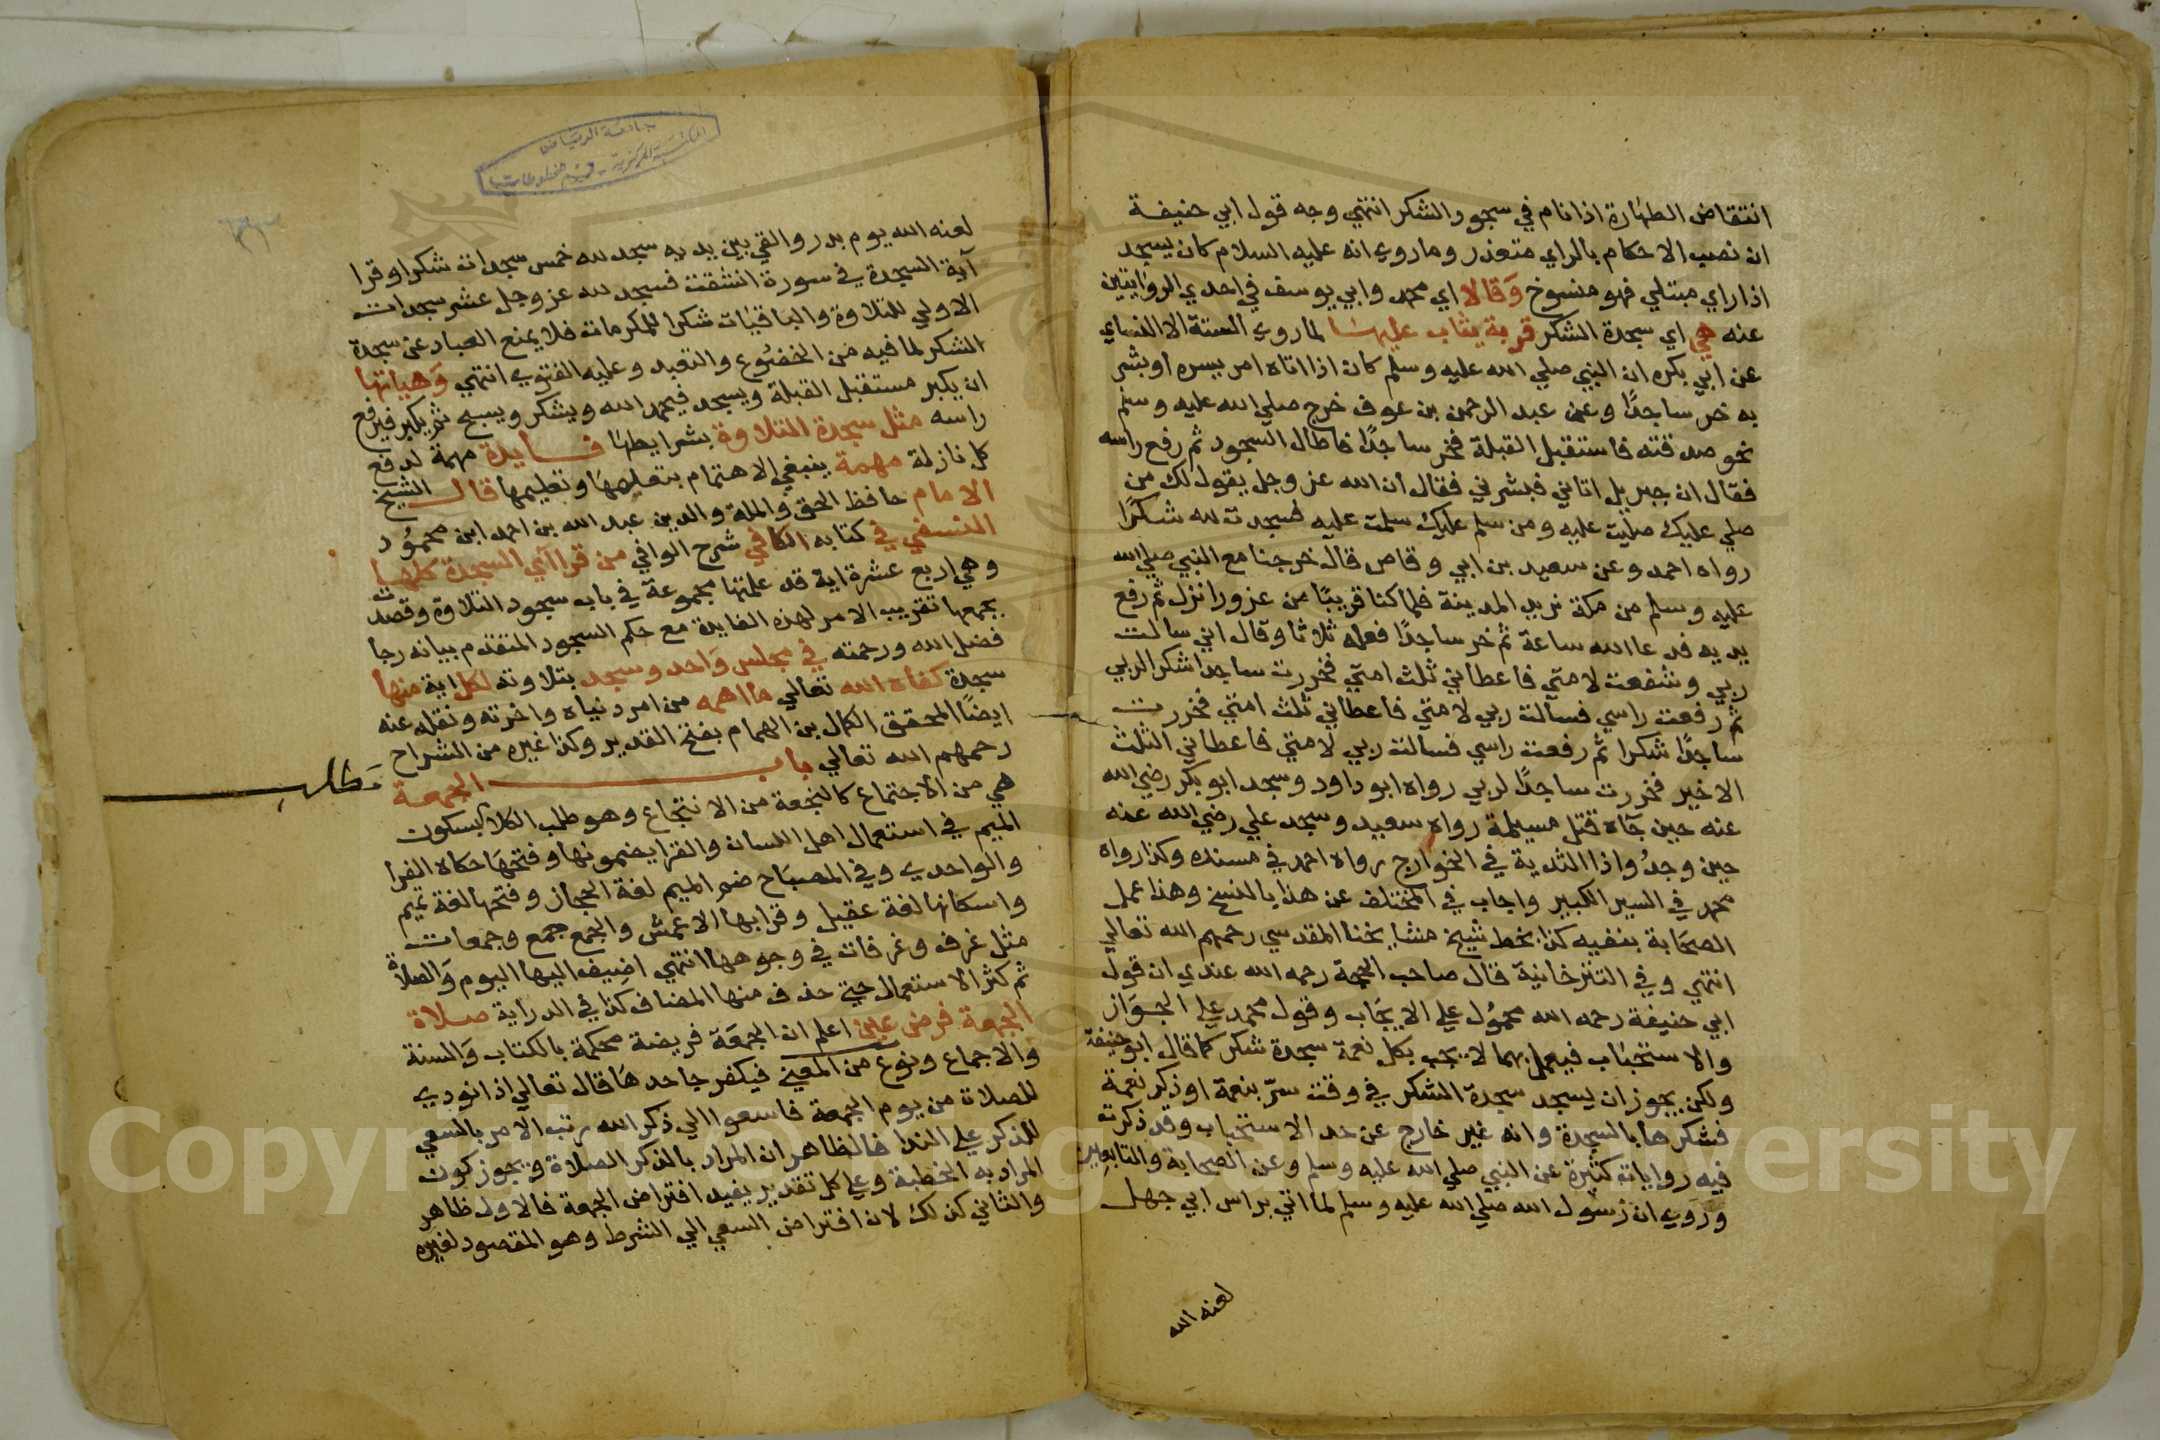 انتقاض الطهارة اذا نام في سجود الشكر انتهي وجه قول ابي حنيفة
ان نصب الاحكام بالراي متعذر وما روي انه عليه السلام كان يسجد
اذا راي مبتلي فهو منسوخ وقالا اي محمد وابي يوسف في احدي الروايتين
عنه هي اي سجدة الشكر قربة يثاب عليها لما روي الستة الا النساي
عن ابي بكره ان النبي صلي الله عليه وسلم كان اذا اتاه امر يسره او بشر
به خر ساجدًا وعن عبد الرحمن بن عوف خرج صلي الله عليه وسلم
نحو صدقته فاستقبل القبلة فخر ساجدًا فاطال السجود ثم رفع راسه
فقال ان جبريل اتاني فبشرني فقال ان الله عز وجل يقول لك من
صلي عليك صليت عليه ومن سلم عليك سلمت عليه فسجدت لله شكرًا
رواه احمد وعن سعيد بن ابي وقاص قال خرجنا مع النبي صلي الله
عليه وسلم من مكة نريد المدينة فلما كنا قريبًا من عزورا نزل ثم رفع
يديه فدعا الله ساعة ثم خر ساجدًا فعله ثلاثا وقال اني سالت
ربي وشفعت لامتي فاعطاني ثلث امتي فخررت ساجدا شكرا لربي
ثم رفعت راسي فسالت ربي لامتي فاعطاني ثلث امتي فخررت
ساجدًا شكرا ثم رفعت راسي فسالت ربي لامتي فاعطاني الثلث
الاخير فخررت ساجدًا لربي رواه ابو داود وسجد ابو بكر رضي الله
عنه حين جاه قتل مسيلمة رواه سعيد وسجد علي رضي الله عنه
حين وجد واذا الثدية في الخوارج رواه احمد في مسنده وكذا رواه
محمد في السير الكبير واجاب في المختلف عن هذا بالنسخ وهذا عمل
الصحابة بنفيه كذا بخط شيخ مشايخنا المقدسي رحمهم الله تعالي
انتهي وفي التترخانية قال صاحب الحجة رحمه الله عندي ان قول
ابي حنيفة رحمه الله محمول علي الايجاب وقول محمد علي الجواز
والاستحباب فيعمل بهما لا يجب بكل نعمة سجدة شكر كما قال ابو حنيفة
ولكن يجوز ان يسجد سجدة الشكر في وقت سر بنعمة او ذكر نعمة
فشكرها بالسجدة وانه غير خارج عن حد الاستحباب وقد ذكرت
فيه روايات كثيرة عن النبي صلي الله عليه وسلم وعن الصحابة والتابعين
وروي ان رسول الله صلي الله عليه وسلم لما اتي براس ابي جهل
لعنه الله
جامعة الرياض
المكتبة المركزية - قسم المخطوطات
لعنه الله يوم بدر والقي بين يديه سجد لله خمس سجدات شكرا وقرا
آية السجدة في سورة انشقت فسجد لله عز وجل عشر سجدات
الاولي للتلاوة والباقيات شكرا للمكرمات فلا يمنع العباد عن سجدة
الشكر لما فيه من الخضوع والتعبد وعليه الفتوي انتهي وهياتها
ان يكبر مستقبل القبلة ويسجد فيحمد الله ويشكر ويسبح ثم يكبر فيرفع
راسه مثل سجدة التلاوة بشرايطها فايدة مهمة لدفع
كل نازلة مهمة ينبغي الاهتمام بتعلمها وتعليمها قال الشيخ
الامام حافظ الحق والملة والدين عبد الله بن احمد ابن محمود
النسفي في كتابه الكافي شرح الوافي من قرا آي السجدة كلها
وهي اربع عشرة اية قد علمتها مجموعة في باب سجود التلاوة وقصدت
بجمعها تقريب الامر لهذه الفايدة مع حكم السجود المتقدم بيانه رجا
فضل الله ورحمته في مجلس واحد وسجد بتلاوته لكل اية منها
سجدة كفاه الله تعالي ما اهمه من امر دنياه واخرته ونقله عنه
ايضًا المحقق الكمال بن الهمام بفتح القدير وكذا غيره من الشراح
رحمهم الله تعالي باب الجمعة
مطلب
هي من الاجتماع كالنجعة من الانتجاع وهو طلب الكلا بسكون
الميم في استعمال اهل اللسان والقرا يضمونها وفتحها حكاه الفرا
والواحدي وفي المصباح ضم الميم لغة الحجاز وفتحها لغة تميم
واسكانها لغة عقيل وقرا بها الاعمش والجمع جمع وجمعات
مثل غرف وغرفات في وجوهها انتهي اضيف اليها اليوم والصلاة
ثم كثر الاستعمال حتي حذف منها المضاف كذا في الدراية صلاة
الجمعة فرض عين اعلم ان الجمعة فريضة محكمة بالكتاب والسنة
والاجماع ونوع من المعني فيكفر جاحدها قال تعالي اذا نودي
للصلاة من يوم الجمعة فاسعوا الي ذكر الله رتب الامر بالسعي
للذكر علي الندا فالظاهر ان المراد بالذكر الصلاة ويجوز كون
المراد به الخطبة وعلي كل تقدير يفيد افتراض الجمعة فالاول ظاهر
والثاني كذلك لان افتراض السعي الي الشرط وهو المقصود لغيره
Copyright © King Saud University